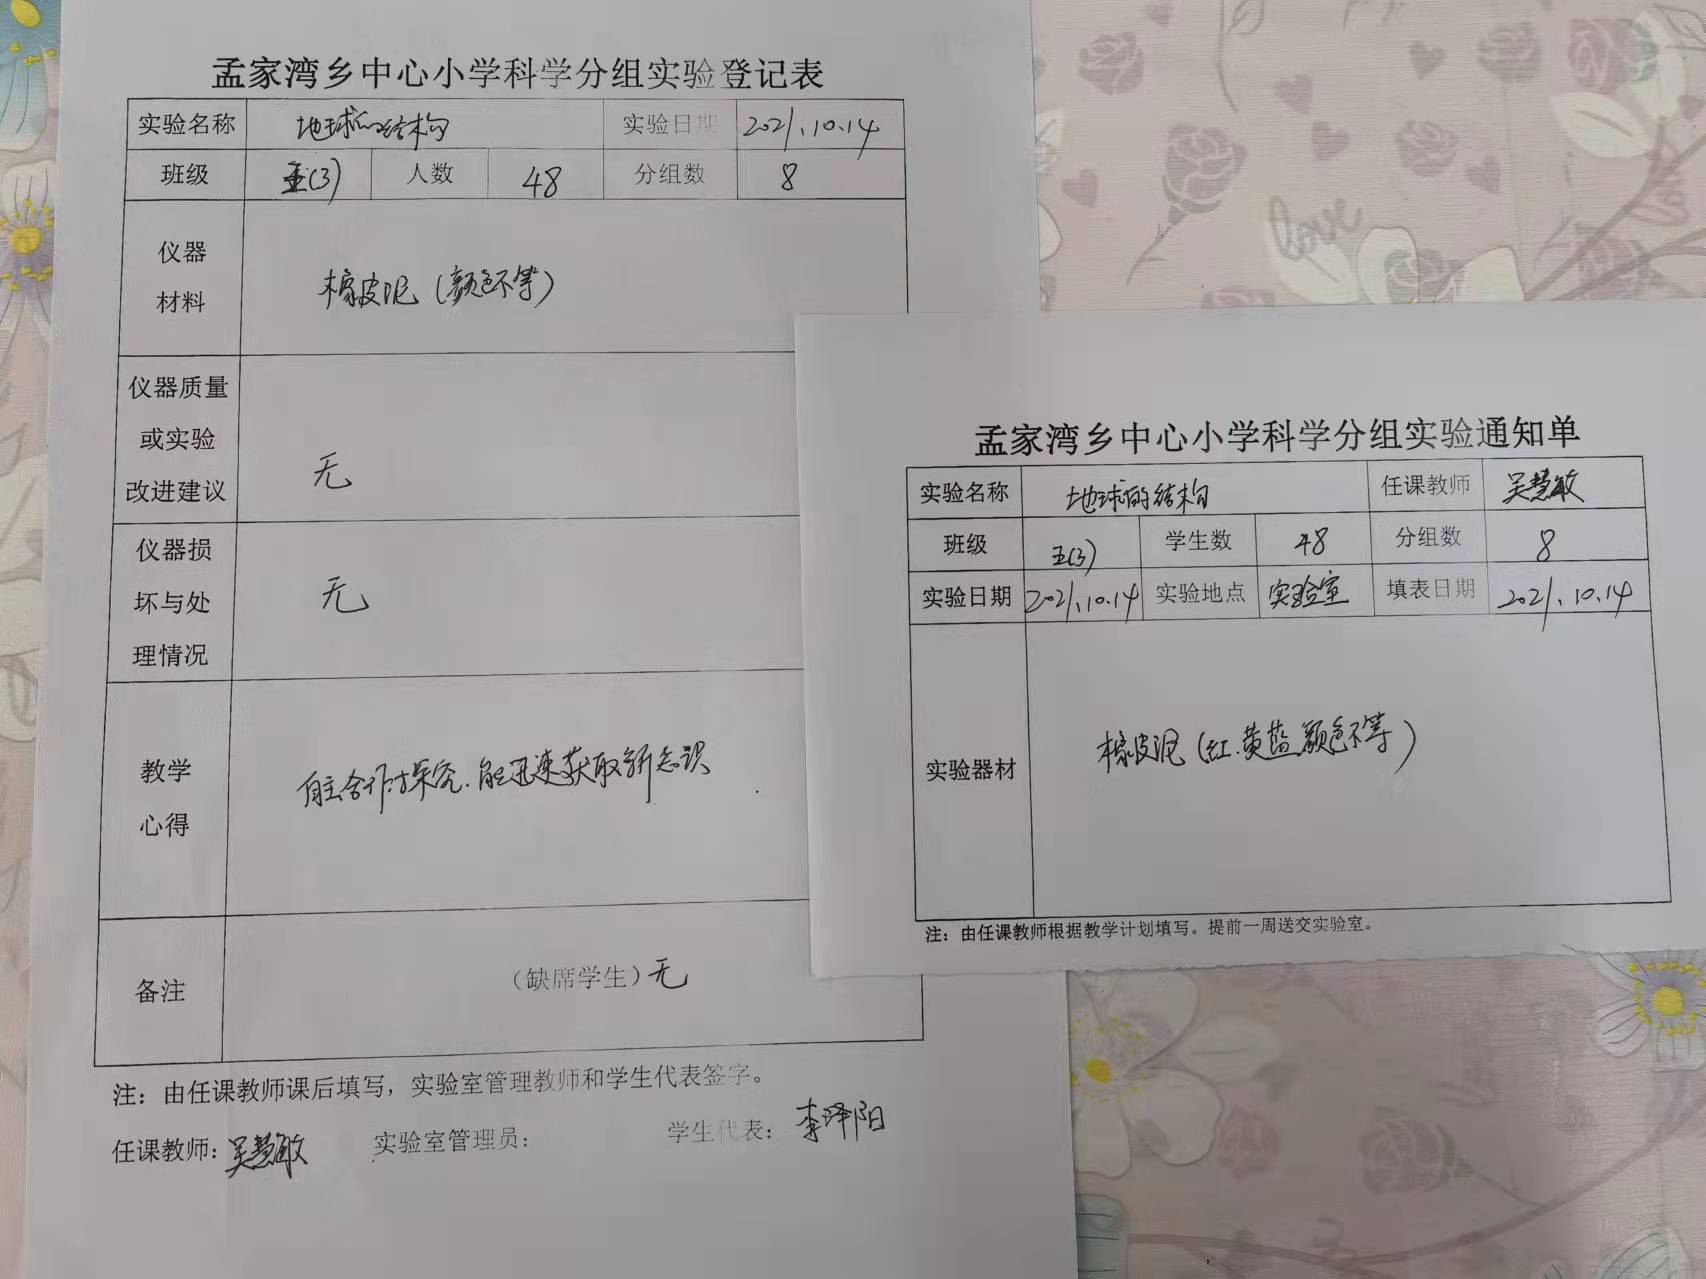 孟家湾乡中心小学科学分组实验登记表
实验名称 地球的结构 实验日期 2021.10.14
班级 五(3) 人数 48 分组数 8
仪器
材料
橡皮泥（颜色不等）
仪器质量
或实验
改进建议
无
仪器损
坏与处
理情况
无
教学
心得
自主合作探究.能迅速获取新知识.
备注 （缺席学生）无
注：由任课教师课后填写，实验室管理教师和学生代表签字。
任课教师：吴慧敏 实验室管理员： 学生代表：李泽阳
孟家湾乡中心小学科学分组实验通知单
实验名称 地球的结构 任课教师 吴慧敏
班级 五(3) 学生数 48 分组数 8
实验日期 2021.10.14 实验地点 实验室 填表日期 2021.10.14
实验器材 橡皮泥（红.黄蓝颜色不等）
注：由任课教师根据教学计划填写。提前一周送交实验室。
love